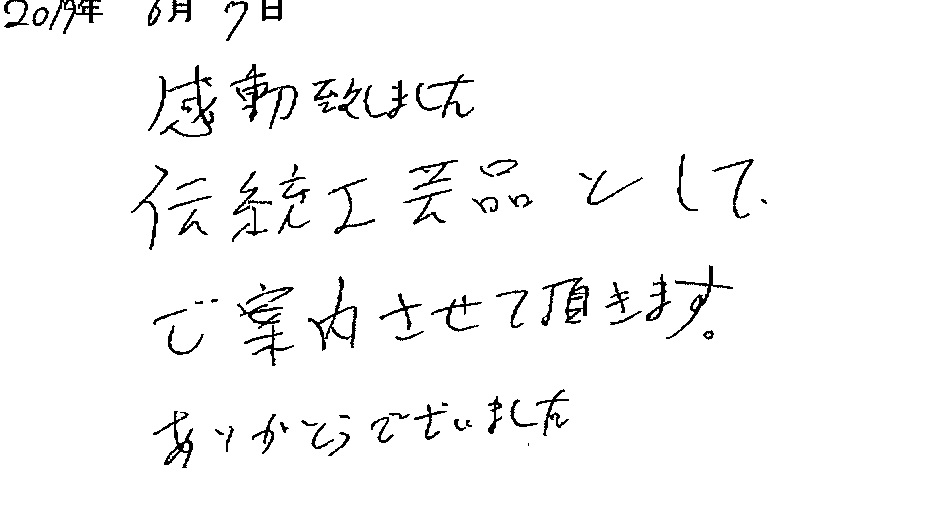 2019年 6月 7日
感動致しました
伝統工芸品として、
ご案内させて頂きます。
ありがとうございました